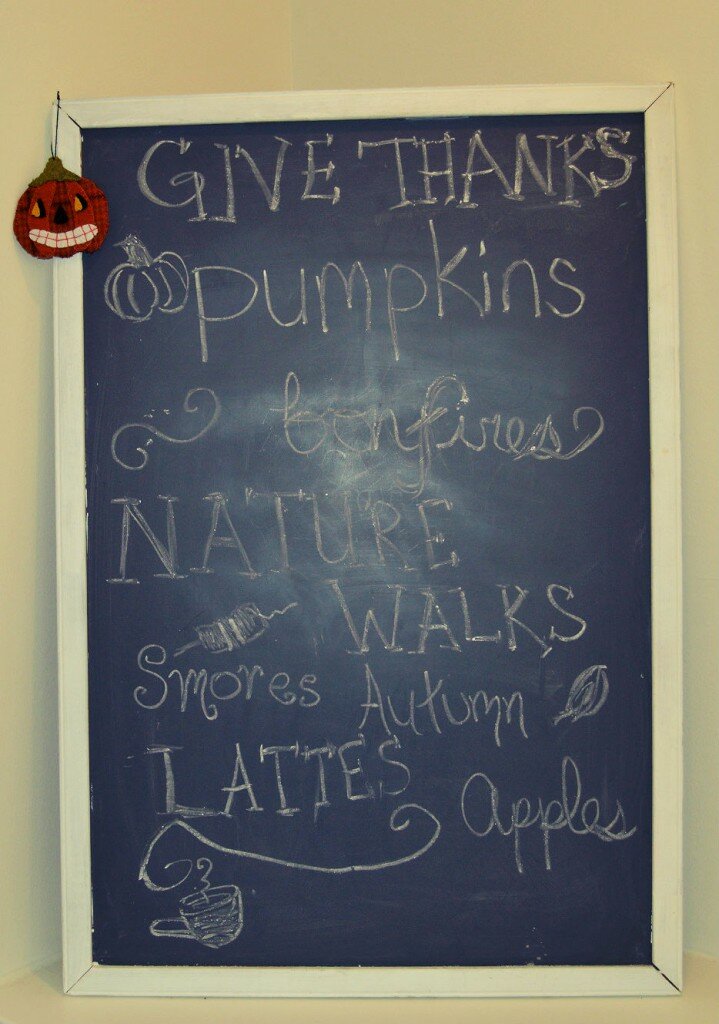 GIVE THANKS
pumpkins
bonfires
NATURE
WALKS
Smores Autumn
LATTES
Apples